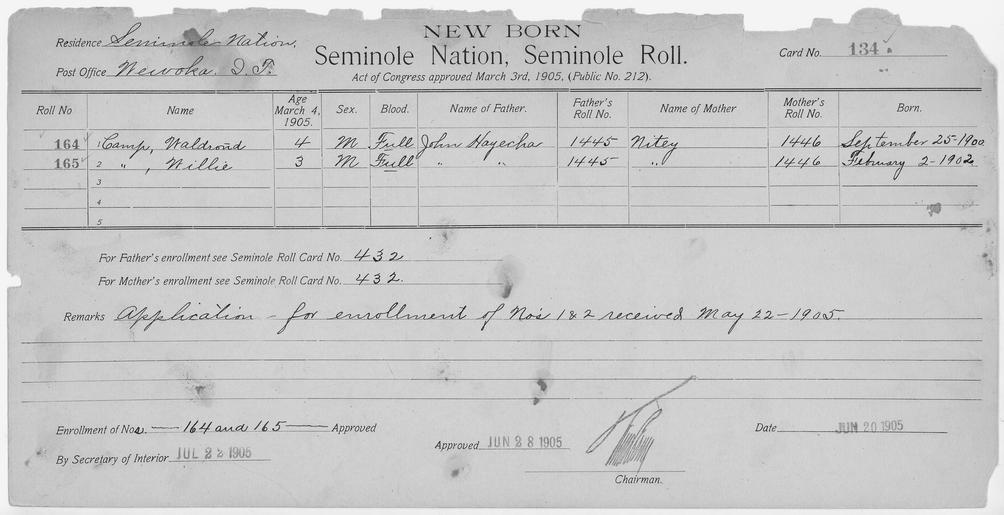 NEW BORN
Seminole Nation, Seminole Roll.
Act of Congress approved March 3rd, 1905, (Public No. 212).
Residence Seminole Nation.
Post Office Wewoka. I. T.
Card No. 134
Roll No Name Age March 4, 1905. Sex. Blood. Name of Father. Father's Roll No. Name of Mother Mother's Roll No. Born.
164 1 Camp, Waldroad 4 M Full John Hayecha 1445 Nitey 1446 September 25-1900
165 2 " , Willie 3 M Full " " 1445 " 1446 February 2-1902
3
4
5
For Father's enrollment see Seminole Roll Card No. 432
For Mother's enrollment see Seminole Roll Card No. 432.
Remarks Application - for enrollment of No's 1 & 2 received May 22-1905.
Enrollment of Nos. — 164 and 165 — Approved
By Secretary of Interior JUL 22 1905
Approved JUN 28 1905
Chairman.
Date JUN 20 1905